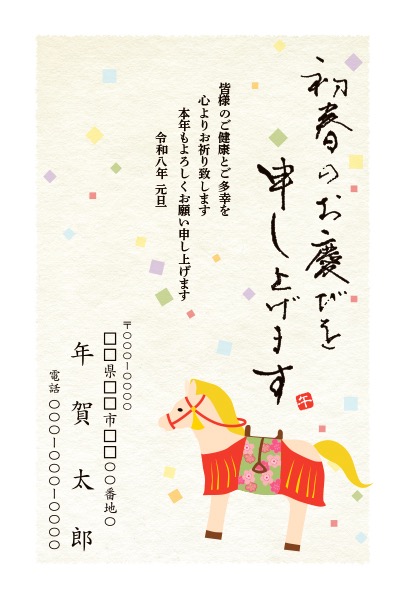 初春のお慶びを
申し上げます
午
皆様のご健康とご多幸を
心よりお祈り致します
本年もよろしくお願い申し上げます
令和八年 元旦
〒〇〇〇-〇〇〇〇
□□県□□市□□〇〇番地〇
年賀太郎
電話 〇〇〇-〇〇〇-〇〇〇〇